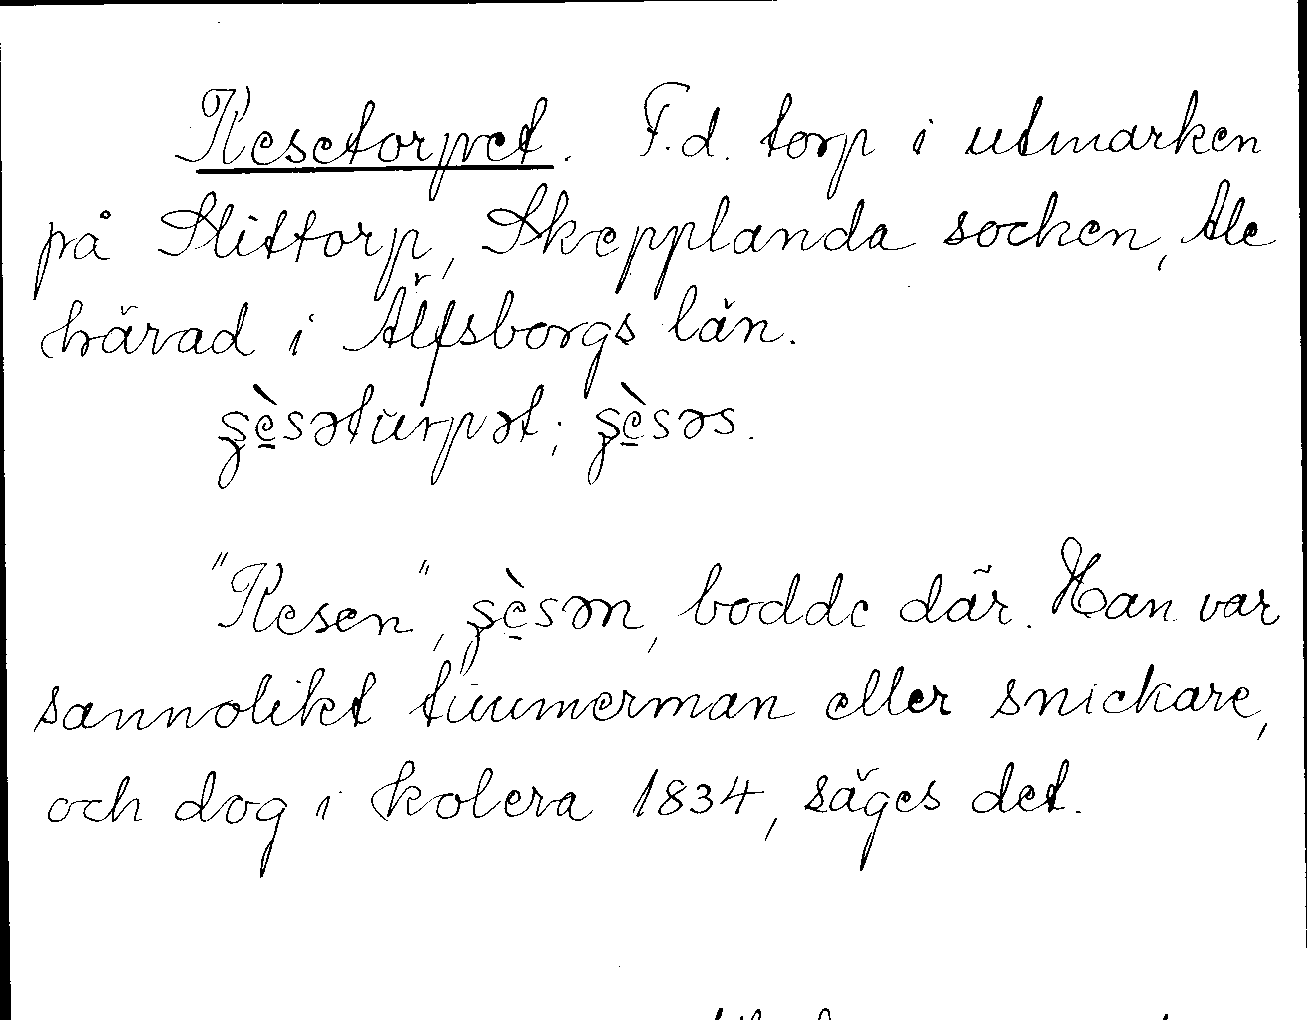 Resetorpet. F.d. torp i utmarken
på Slittorp, Skepplanda socken, Ale
härad i Älfsborgs län.
ʂèsətùrpət; ʂèsəs.
"Resen", ʂèsən, bodde där. Han var
sannolikt timmerman eller snickare,
och dog i kolera 1834, säges det.